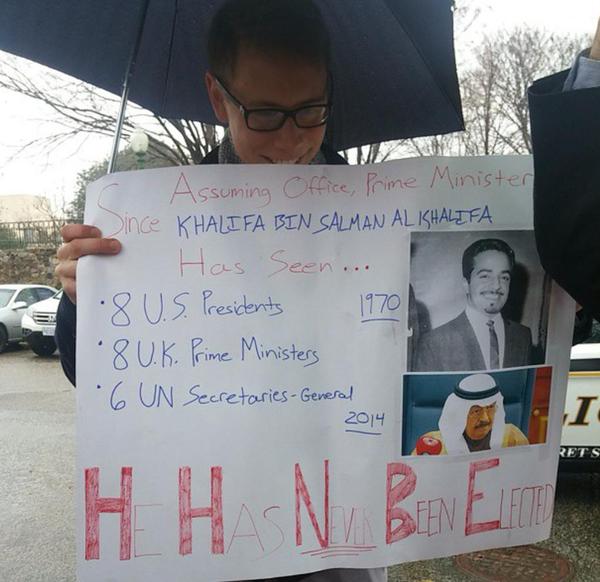 Since Assuming Office, Prime Minister
KHALIFA BIN SALMAN AL KHALIFA
Has Seen...
• 8 U.S. Presidents
1970
• 8 U.K. Prime Ministers
• 6 UN Secretaries-General
2014
HE HAS NEVER BEEN ELECTED
RET S